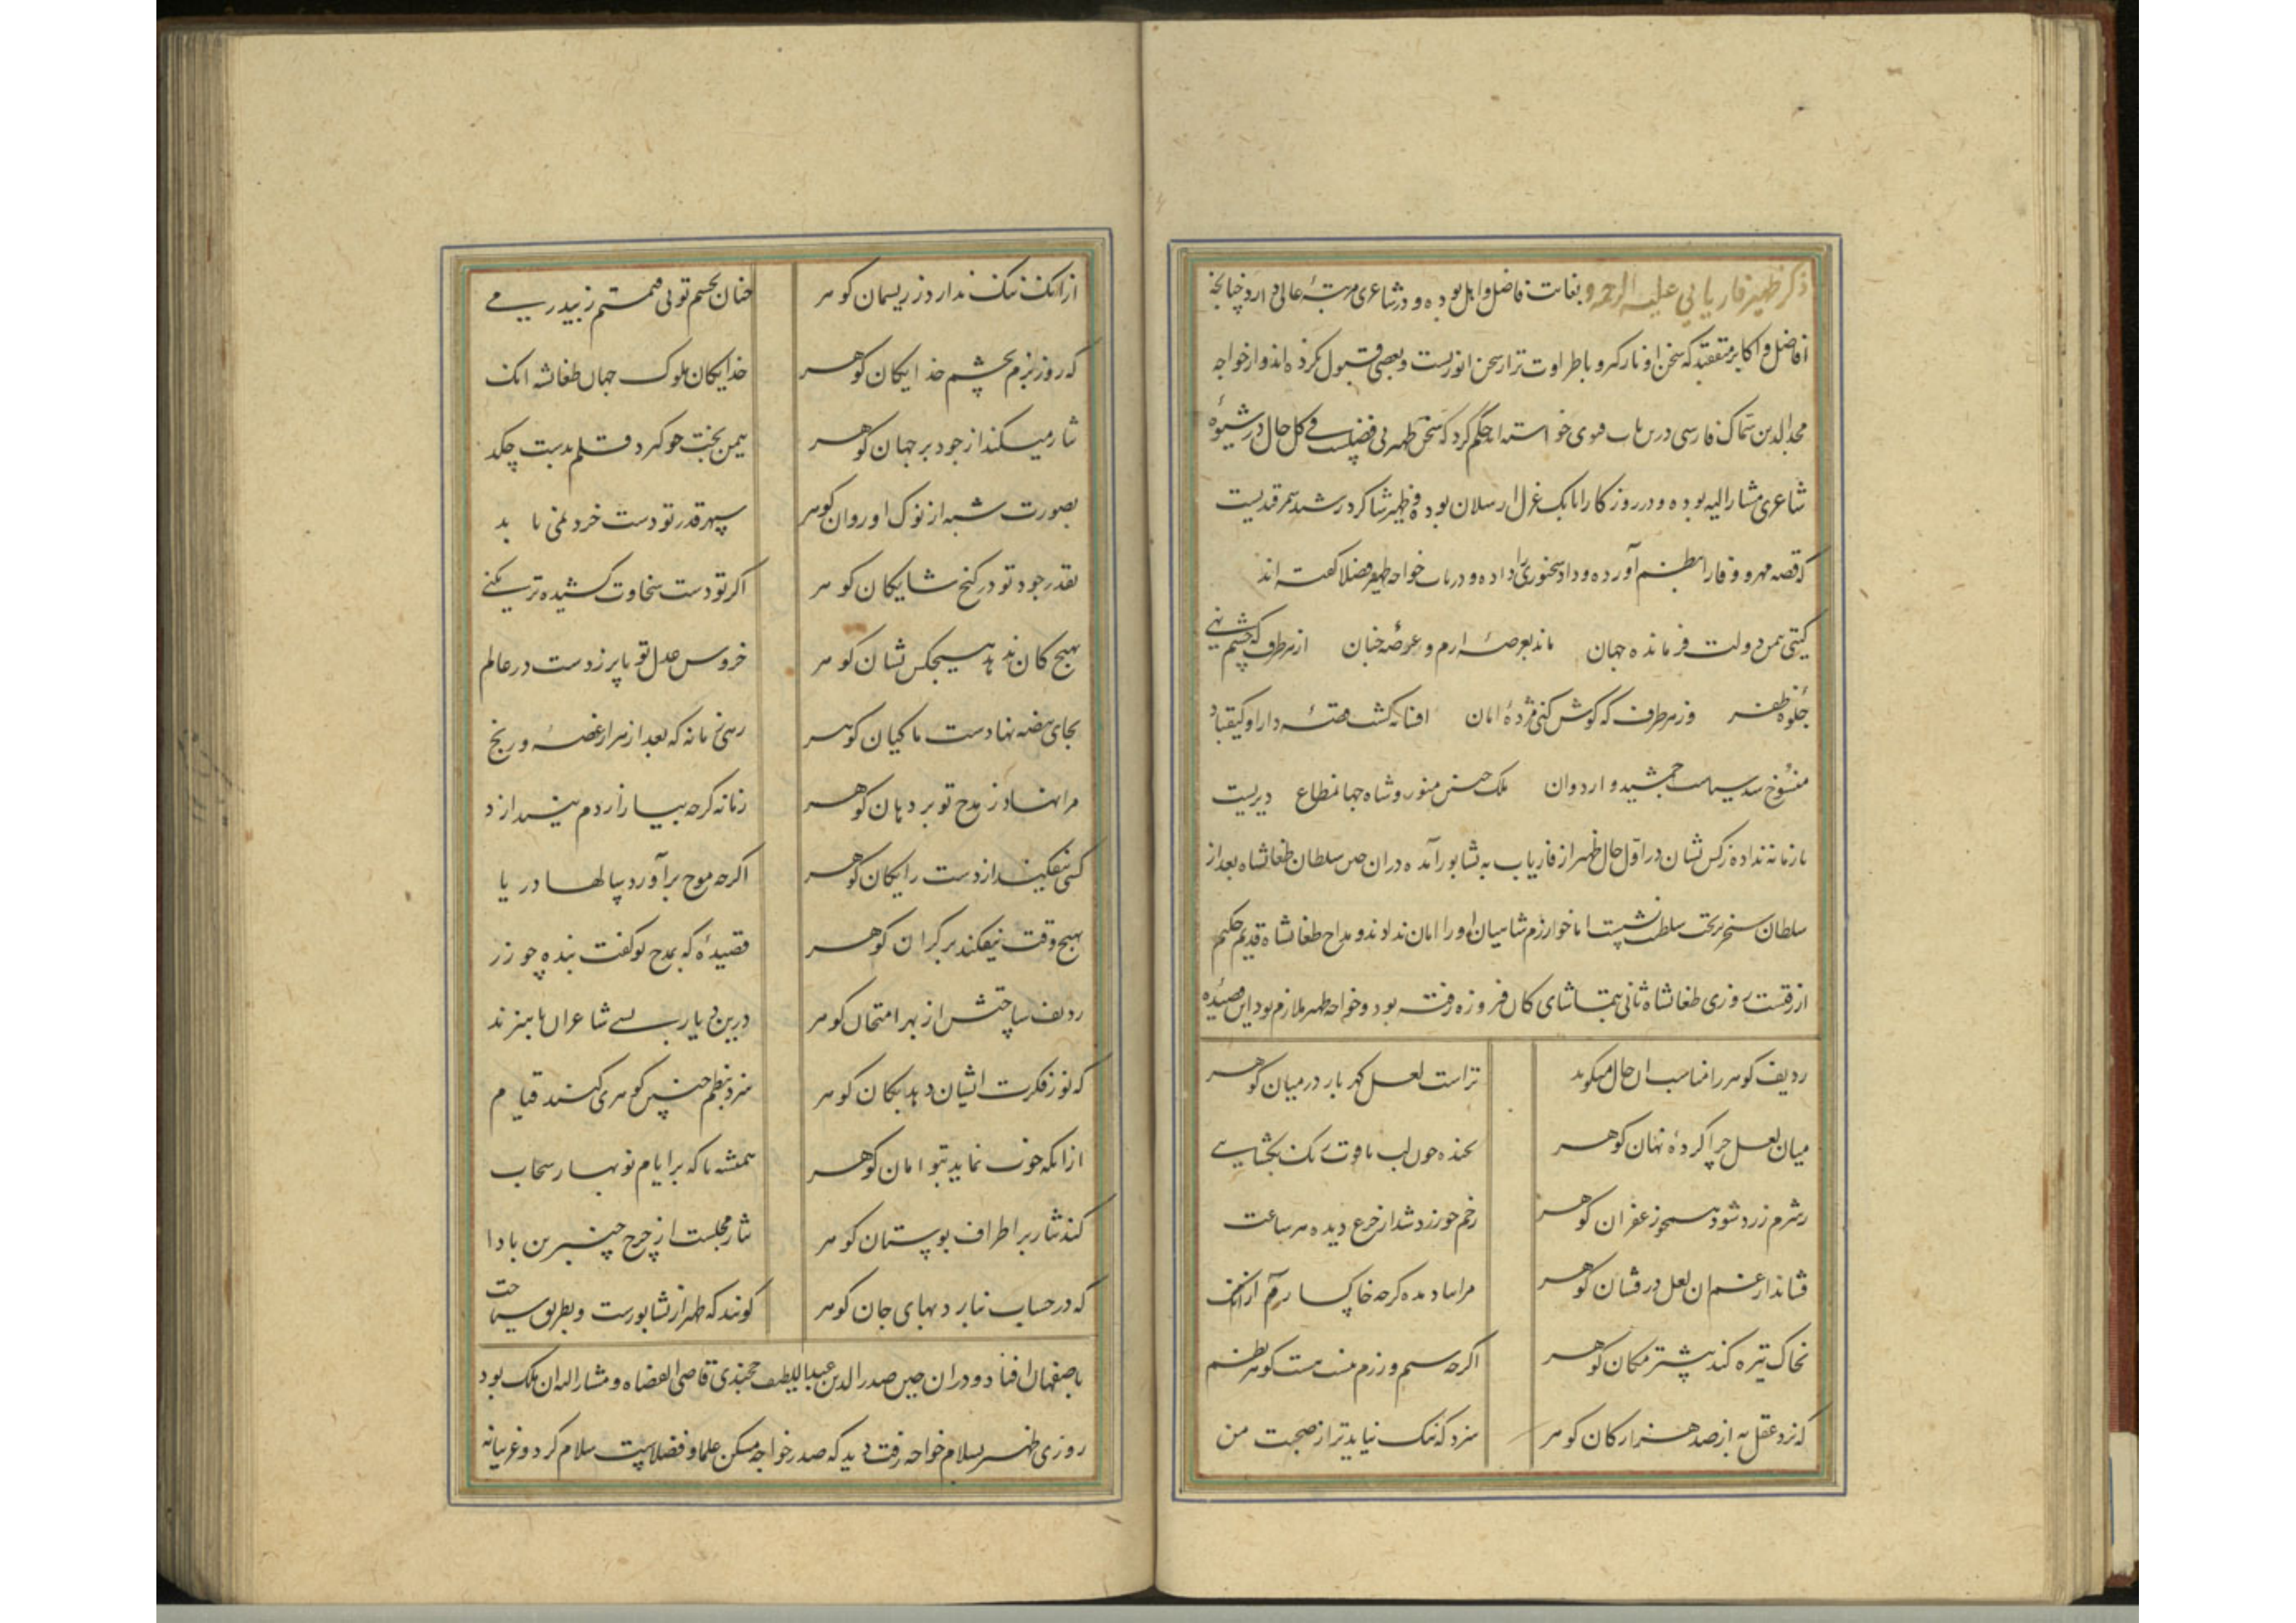 ذکر ظهیر فاریابی علیه الرحمه و بغایت فاضل و اهل بوده و در شاعری مرتبهٔ عالی دارد چنانچه
افاضل و اکابر متفقند که سخن او نازکتر و باطراوت تر از سخن انوریست و بعضی قبول نکرده اند و از خواجه
مجدالدین همگر فارسی درین باب فتوی خواسته اند حکم کرد که سخن
شاعری مشار الیه بوده و در روزکار اتابک قزل ارسلان بوده و ظهیر شاکرد رشیدی سمرقندیست
که قصه مهر و وفا را بنظم آورده و داد سخنوری را داده و در باب خواجه ظهیر فضلا کفته اند
کیتی بیمن دولت فرمانده جهان ماند بعرصهٔ ارم و عرضهٔ جنان از هر طرف که چشم نهی
جلوهٔ ظفر وز هر طرف که کوش کنی مژدهٔ امان افسانه کشت قصهٔ دارا و کیقباد
منسوخ شد سیاست جمشید و اردوان ملک حسن منور و شاه جهان مطاع دیریست
تا زمانه نداده ز کس نشان در اول حال ظهیر از فاریاب به نشابور آمده در ان حین سلطان طغانشاه بعد از
سلطان سنجر بر تخت سلطنت نشست اما خوارزم شاهیان او را امان ندادند و مداح طغانشاه قدیم حکیم
ازرقیست روزی طغانشاه ثانی بتماشای کان فیروزه رفته بود و خواجه ظهیر ملازم بود این قصیده
ردیف کوهر را مناسب ان حال میکوید تراست لعل کهربار در میان کوهر
میان لعل چرا کردهٔ نهان کوهر بخنده چون لب یاقوت رنک بکشایی
ز شرم زرد شود همچو زعفران کوهر رخم چو زر زد شد از جزع دیده هر ساعت
فشاند از غم ان لعل درفشان کوهر مرا بباد مده کرچه خاکسارم از انک
بخاک تیره کند بیشتر مکان کوهر اکرچه سیم و زرم نیست هست کوهر نظم
که نزد عقل به از صد هزار کان کوهر سزد که ننک نیاید ترا ز صحبت من
از انک ننک ندارد ز ریسمان کوهر چنان بچشم تو بی قیمتم ز بی درمی
که روز بزم بچشم خدایکان کوهر خدایکان ملوک جهان طغانشه انک
نثار میکند از جود بر جهان کوهر بیمن بختت جو کرد قلم بدست چکد
بصورت شبه از نوک او روان کوهر سپهر قدر تو دست خرد نمی یابد
بقدر جود تو در کنج شایکان کوهر اکر تو دست سخاوت کشیده تر نکنی
بهیچ کان ندهد هیچکس نشان کوهر خروس عدل تو تا پر زدست در عالم
بجای بیضه نهادست ماکیان کوهر زهی زمانه که بعد از هزار غصه و رنج
مرا نهاد ز مدح تو بر دهان کوهر زمانه کرچه بیازاردم نیندازد
کسی نیفکند از دست رایکان کوهر اکرچه موج برآورد سالها دریا
بهیچ وقت نیفکند بر کران کوهر قصیدهٔ که بمدح تو کفت بنده چو زر
ردیف ساختش از بهر امتحان کوهر درین دیار بسی شاعران با هنرند
که نور فکرت ایشان دهد بکان کوهر سزد بنظم چنین کوهری کنند قیام
از انکه خوب نماید بتوامان کوهر همیشه تا که بر ایام نوبهار سحاب
کند نثار بر اطراف بوستان کوهر نثار مجلست از چرخ چنبرین بادا
که در حساب نیارد بهای جان کوهر کویند که ظهیر از نشابورست و بطریق سیاحت
باصفهان افتاد و در ان حین صدرالدین عبداللطیف خجندی قاضی القضاه و مشار الیه ان ملک بود
روزی ظهیر بسلام خواجه رفت دید که صدر خواجه مسکن علما و فضلاست سلام کرد و غریبانه